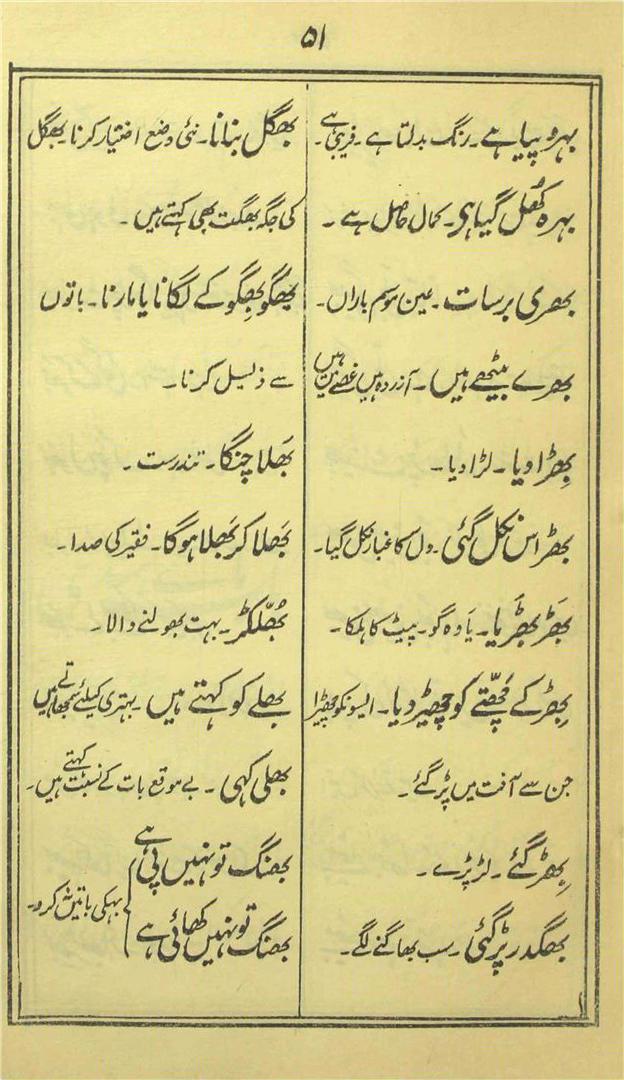 ۵۱
بہروپیا ہے۔ رنگ بدلتا ہے۔ فریبی ہے۔
بہرہ کھُل گیا ہی۔ کمال حاصل ہے۔
بھری برسات۔ عین موسم باراں۔
بھرے بیٹھے ہیں۔ آزردہ ہیں غصے میں ہیں
بِھڑا دیا۔ لڑا دیا۔
بھڑاس نکل گئی۔ دل کا غبار نکل گیا۔
بَھڑبَھڑیا۔ یاوہ گو۔ پیٹ کا ہلکا۔
بِھڑ کے چھتّے کو چھیڑ دیا۔ ایسونکو چھیڑا
جن سے آفت میں پڑ گئے۔
بِھڑ گئے۔ لڑ پڑے۔
بھگدر پڑ گئی۔ سب بھاگنے لگے۔
بھگل بنانا۔ نئی وضع اختیار کرنا۔ بھگل
کی جگہ بھگت بھی کہتے ہیں۔
بھگو بھگو کے لگانا یا مارنا۔ باتوں
سے ذلیل کرنا۔
بَھلا چنگا۔ تندرست۔
بَھلا کر بَھلا ہوگا۔ فقیر کی صدا۔
بُھلّکڑ۔ بہت بھولنے والا۔
بھلے کو کہتے ہیں۔ بہتری کیلئے سمجھاتے ہیں
بھلی کہی۔ بے موقع بات کے نسبت کہتے ہیں۔
بھنگ تو نہیں پی ہے
بھنگ تو نہیں کھائی ہے } بہکی باتیں نہ کرو۔